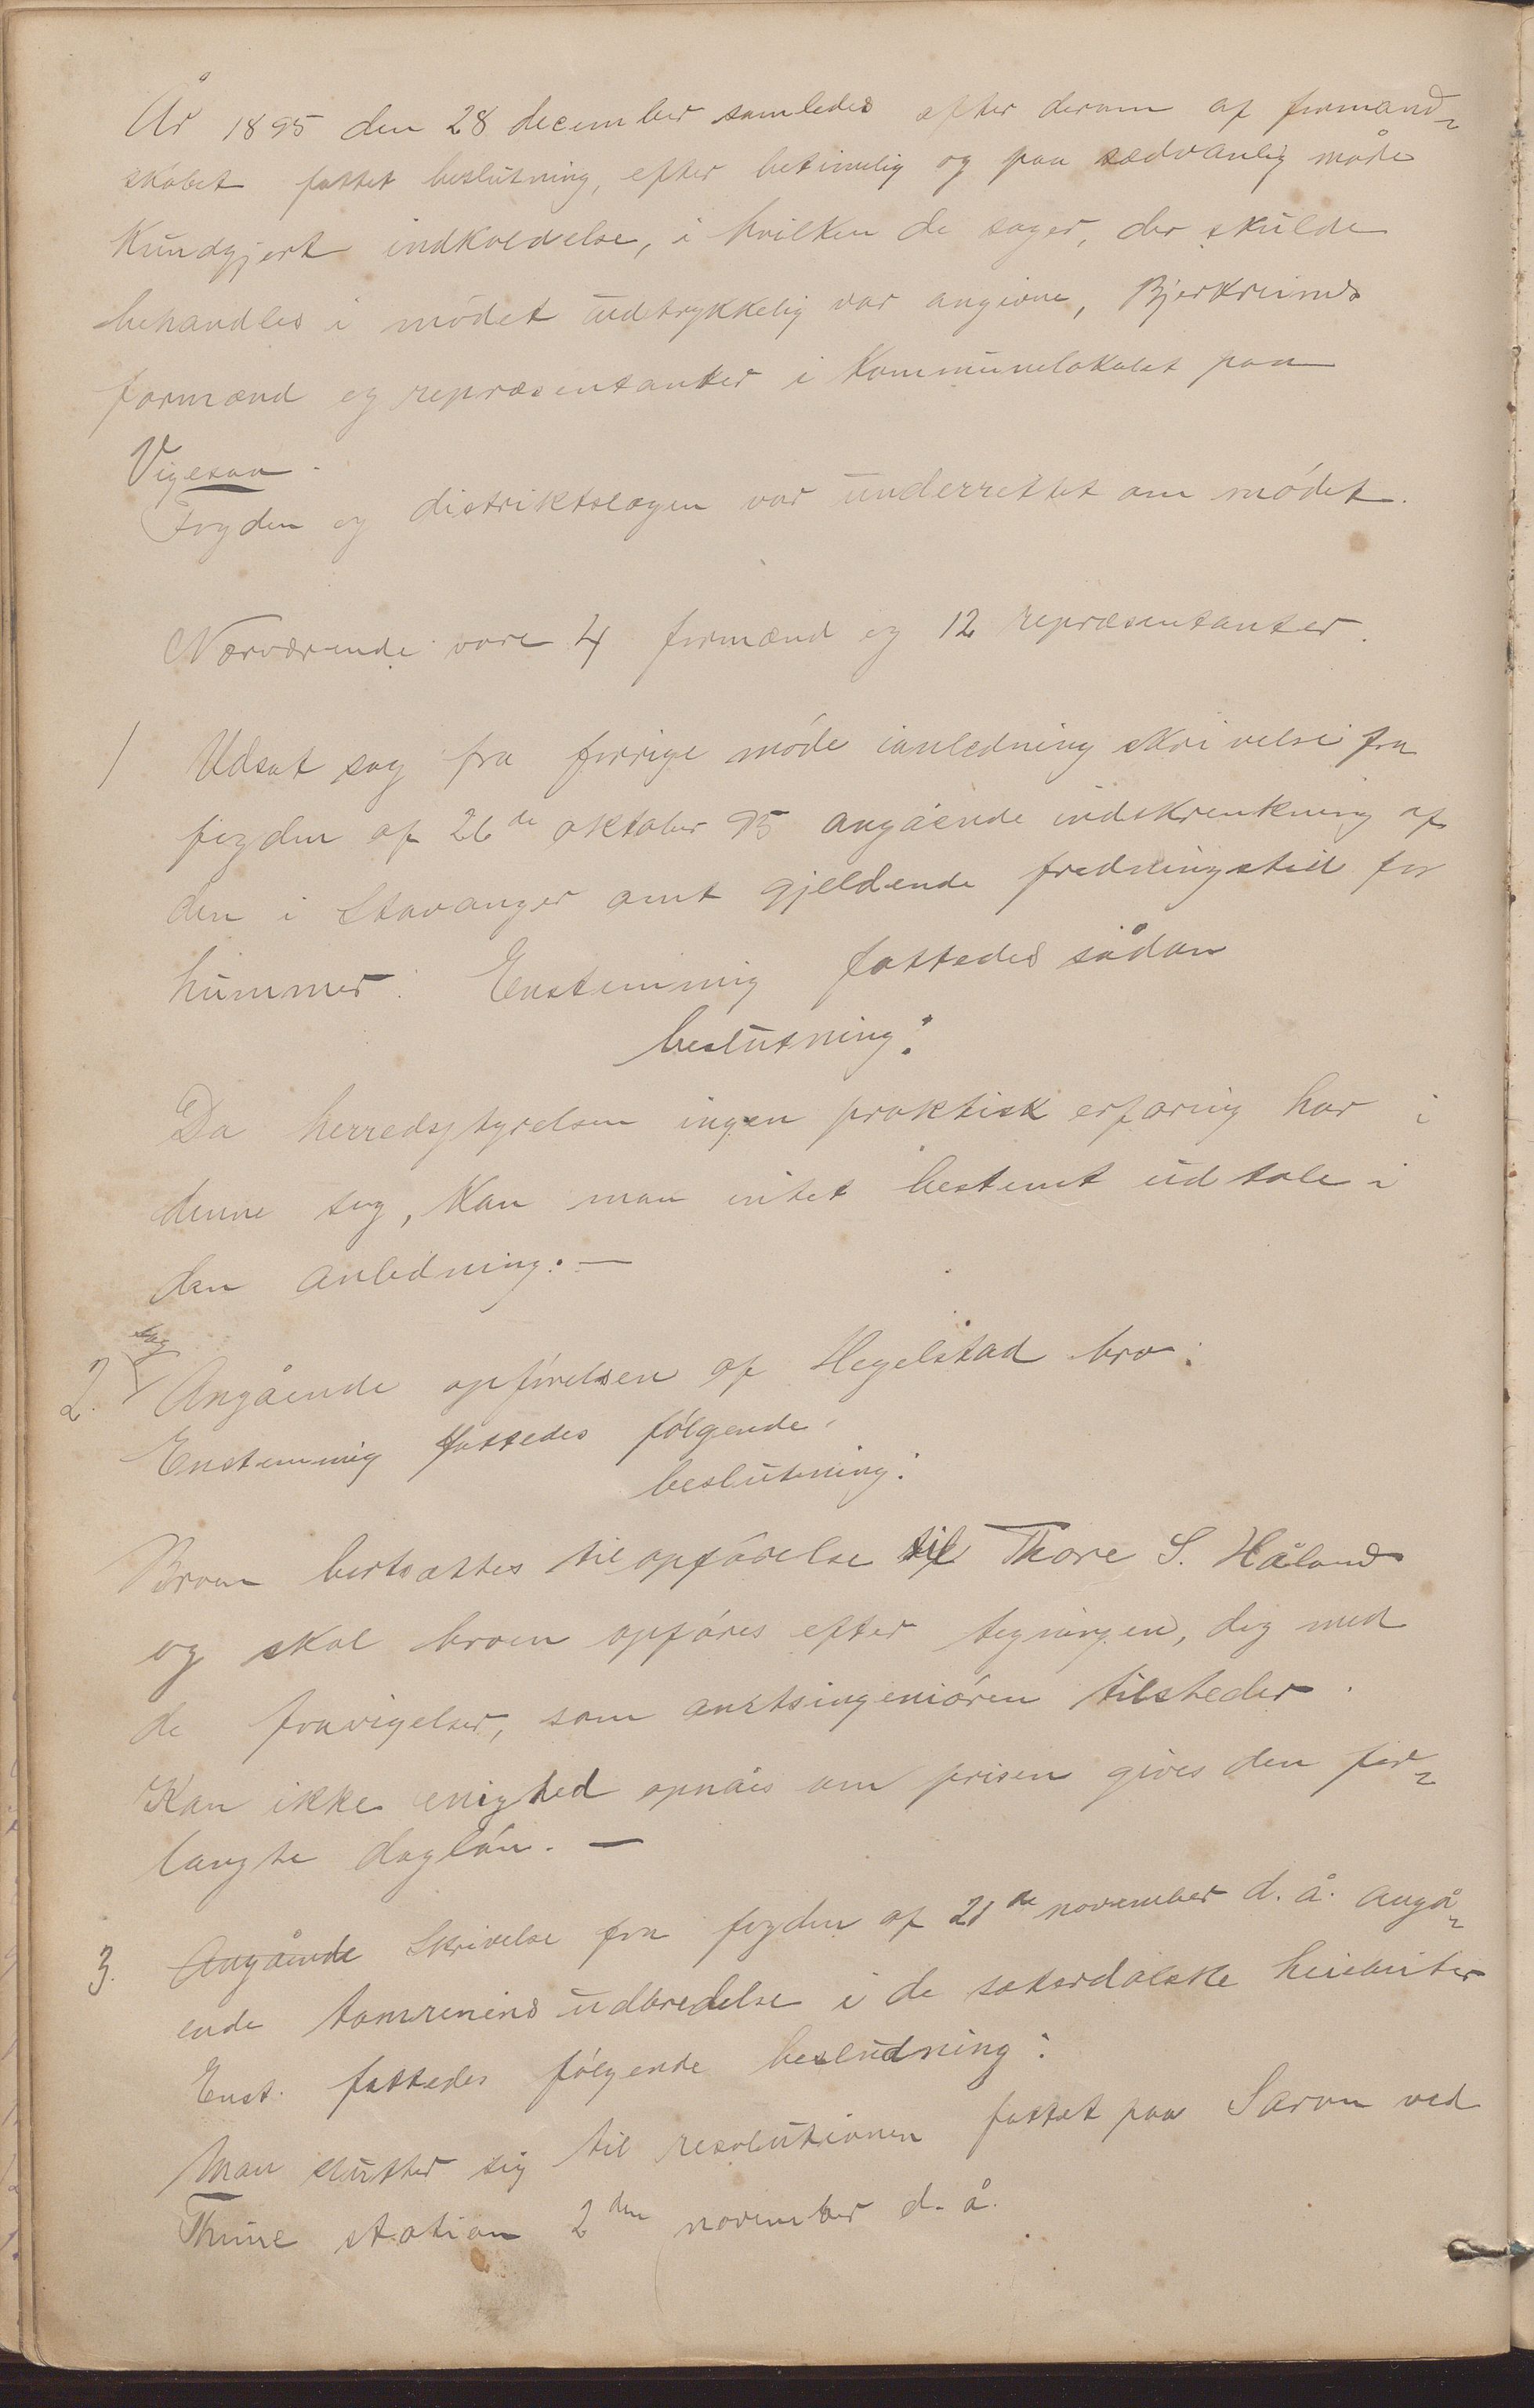 År 1895 den 28 december samledes efter derom af formand-
skabet fattet beslutning, efter betimelig og paa sædvanlig måde
kundgjort indkaldelse, i hvilken de sager, der skulde
behandles i mødet udtrykkelig var angivne, Bjerkreims
formænd og repræsentanter i Kommunelokalet paa
Vigesaa.
Fogden og distriktslægen var underrettet om mødet.
Nærværende vare 4 formænd og 12 repræsentanter.
1 Udsat sag fra forrige møde ianledning skrivelse fra
fogden af 26de oktober 95 angående indskrenkning af
den i Stavanger amt gjeldende fredningstid for
hummer. Enstemmig fattedes sådan
beslutning:
Da herredsstyrelsen ingen praktisk erfaring har i
denne sag, kan man intet bestemt udtale i
den anledning. —
Sag
2. Angående opførelsen af Hegelstad bro:
Enstemmig fattedes følgende
beslutning:
Broen bortsættes til opførelse til Thore S. Håland
og skal broen opføres efter tegningen, dog med
de fravigelser, som amtsingeniøren tilsteder.
Kan ikke enighed opnåes om prisen gives den for-
langte dagløn. —
3. Angående Skrivelse fra fogden af 21de november d. å. angå-
ende tamrenens udbredelse i de sætersdalske heieviter
Enst. fattedes følgende besludning:
Man slutter sig til resolutionen fattet paa Saron ved
Thime station 2den november d. å.